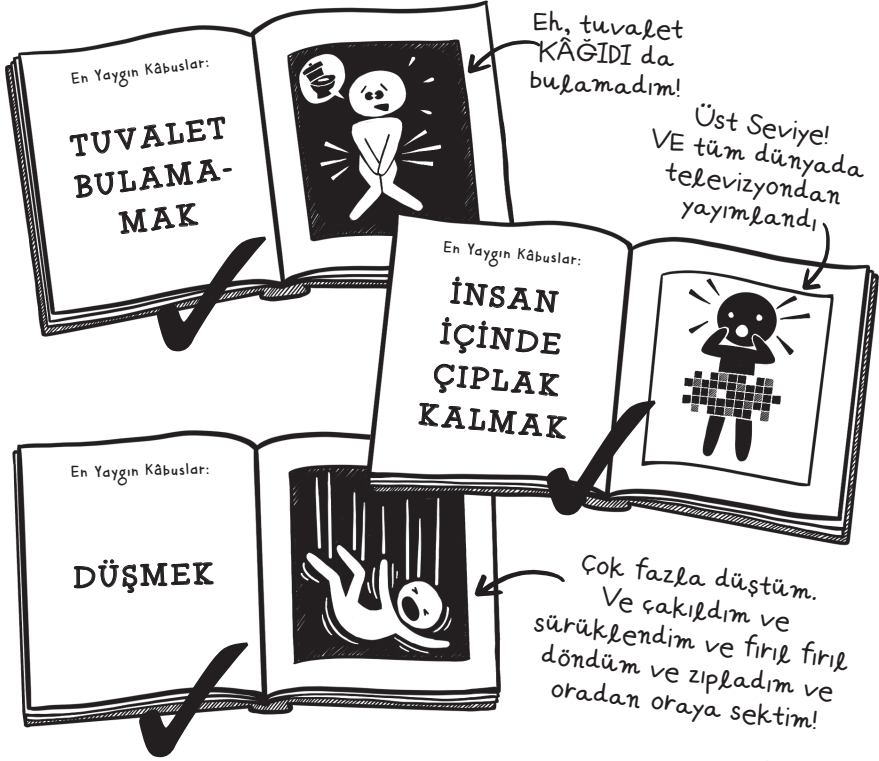 En Yaygın Kâbuslar:
TUVALET
BULAMA-
MAK
Eh, tuvalet
KÂĞIDI da
bulamadım!
Üst Seviye!
VE tüm dünyada
televizyondan
yayımlandı
En Yaygın Kâbuslar:
İNSAN
İÇİNDE
ÇIPLAK
KALMAK
En Yaygın Kâbuslar:
DÜŞMEK
Çok fazla düştüm.
Ve çakıldım ve
sürüklendim ve fırıl fırıl
döndüm ve zıpladım ve
oradan oraya sektim!